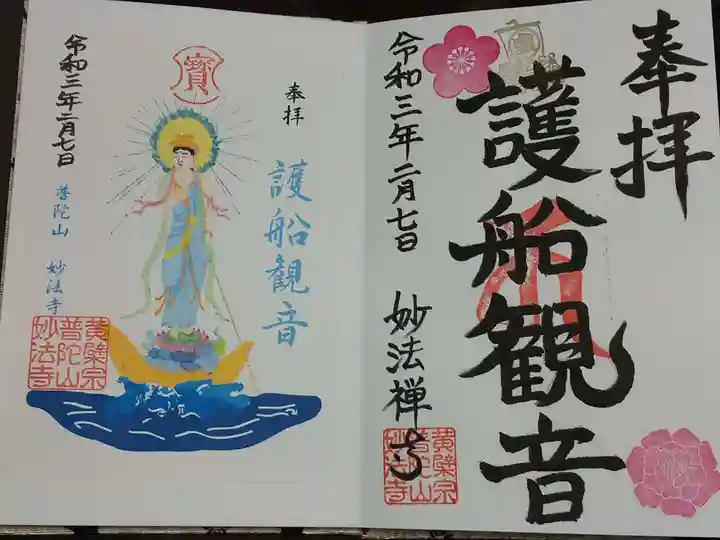 奉拝
護船観音
令和三年二月七日
妙法禅寺
黄檗宗
普陀山
妙法寺
寳
奉拝
護船観音
令和三年二月七日
普陀山 妙法寺
黄檗宗
普陀山
妙法寺